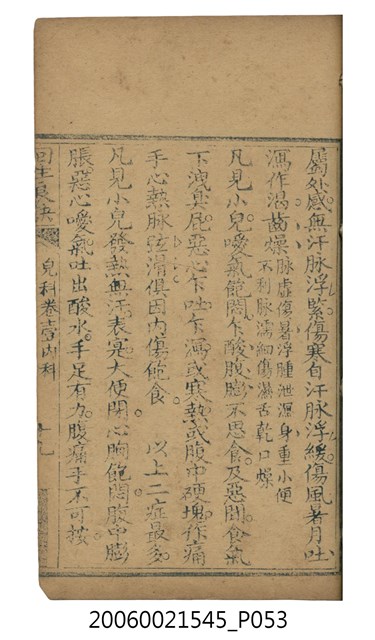 屬外感無汗脉浮緊傷寒自汗脉浮緩傷風著月吐
瀉作渴齒燥脉虛傷暑浮腫泄瀉身重小便
不利脉濡細傷濕舌乾口燥
凡見小兒噯氣飽悶乍酸腹膨不思食及惡聞食氣
下洩臭屁惡心乍吐乍瀉或寒熱或腹中硬塊作痛
手心熱脉弦滑俱因內傷飲食 以上二症最多
凡見小兒發熱無汗表寔大便閉心胸飽悶腹中膨
脹惡心噯氣吐出酸水手足有力腹痛手不可按
回生良訣 兒科卷壹內科
20060021545_P053